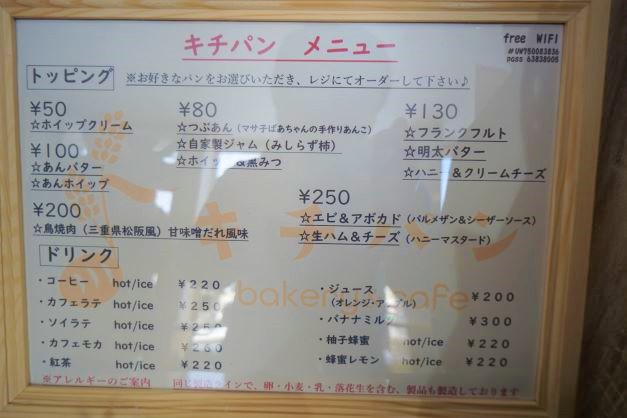 キチパン メニュー
free WIFI
#UW750083836
pass 63838005
トッピング ※お好きなパンをお選びいただき、レジにてオーダーして下さい♪
¥50
☆ホイップクリーム
¥100
☆あんバター
☆あんホイップ
¥80
☆つぶあん(マサ子ばあちゃんの手作りあんこ)
☆自家製ジャム(みしらず柿)
☆ホイップ&黒みつ
¥130
☆フランクフルト
☆明太バター
☆ハニー&クリームチーズ
¥200
☆鳥焼肉(三重県松阪風)甘味噌だれ風味
¥250
☆エビ&アボカド(パルメザン&シーザーソース)
☆生ハム&チーズ(ハニーマスタード)
キチパン
bakery cafe
ドリンク
・コーヒー hot/ice ¥220
・カフェラテ hot/ice ¥250
・ソイラテ hot/ice ¥250
・カフェモカ hot/ice ¥260
・紅茶 hot/ice ¥220
・ジュース
(オレンジ・アップル) ¥200
・バナナミルク ¥300
・柚子蜂蜜 hot/ice ¥220
・蜂蜜レモン hot/ice ¥220
※アレルギーのご案内 同じ製造ラインで、卵・小麦・乳・落花生を含む、製品も製造しております